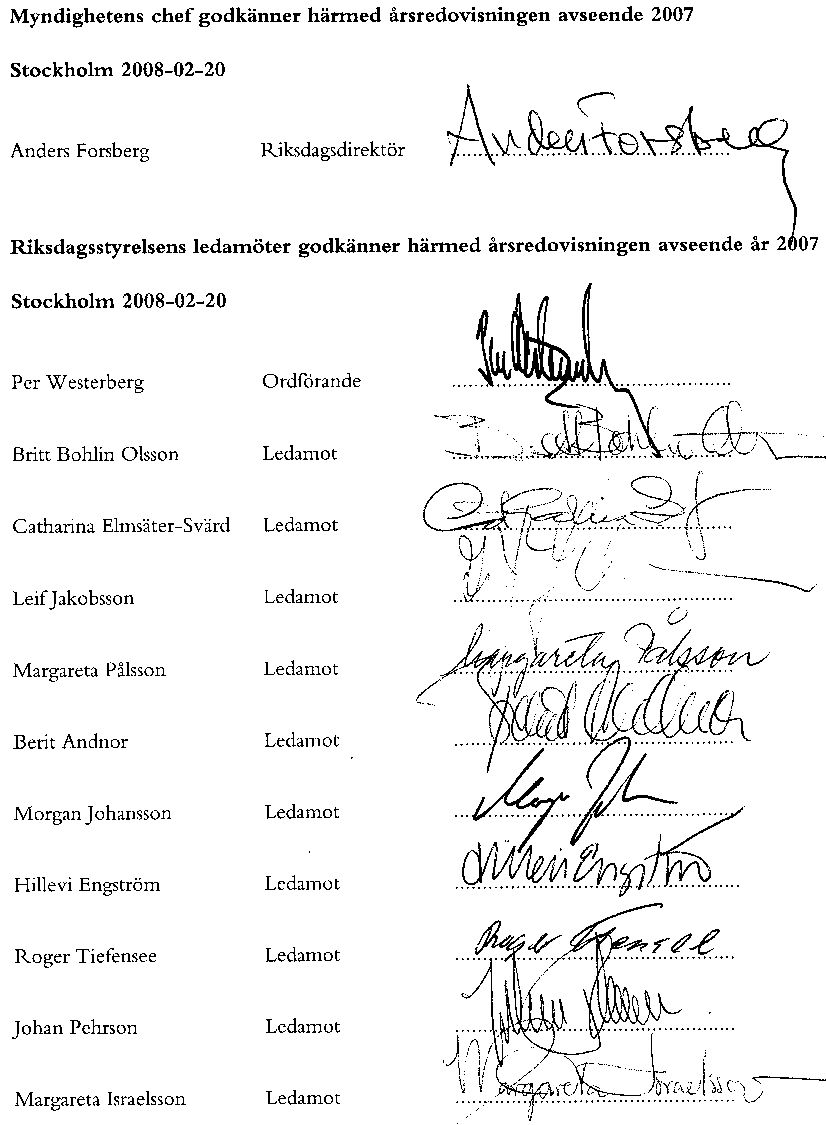 Myndighetens chef godkänner härmed årsredovisningen avseende 2007
Stockholm 2008-02-20
Anders Forsberg Riksdagsdirektör Anders Forsberg
Riksdagsstyrelsens ledamöter godkänner härmed årsredovisningen avseende år 2007
Stockholm 2008-02-20
Per Westerberg Ordförande
Britt Bohlin Olsson Ledamot
Catharina Elmsäter-Svärd Ledamot
Leif Jakobsson Ledamot
Margareta Pålsson Ledamot Margareta Pålsson
Berit Andnor Ledamot
Morgan Johansson Ledamot
Hillevi Engström Ledamot Hillevi Engström
Roger Tiefensee Ledamot Roger Tiefensee
Johan Pehrson Ledamot
Margareta Israelsson Ledamot Margareta Israelsson